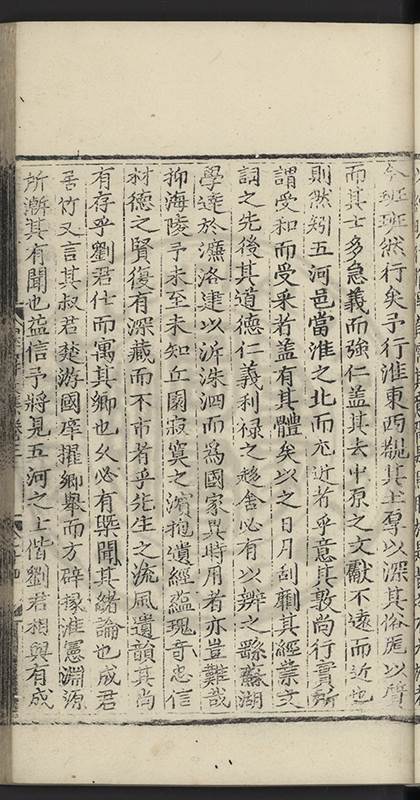 今班班然行矣予行淮東西覩其土厚以深其俗厖以質
而其士多急義而強仁蓋其去中原之文獻不遠而近也
則然矧五河邑當淮之北而尤近者乎意其敦尚行實所
謂受和而受采者蓋有其體矣以之日月刮劘其經業文
詞之先後其道德仁義利祿之趍舍必有以辨之繇蘇湖
學達於濂洛建以泝洙泗而爲國家異時用者亦豈難哉
抑海陵予未至未知丘園寂寞之濱抱遺經蘊瑰奇忠信
材德之賢復有深藏而不市者乎先生之流風遺韻其尚
有存乎劉君仕而寓其鄉也久必有槩聞其緒論也成君
居竹又言其叔君楚游國庠擢鄉舉而方辟掾淮憲淵源
所漸其有聞也益信予將見五河之士偕劉君相與有成